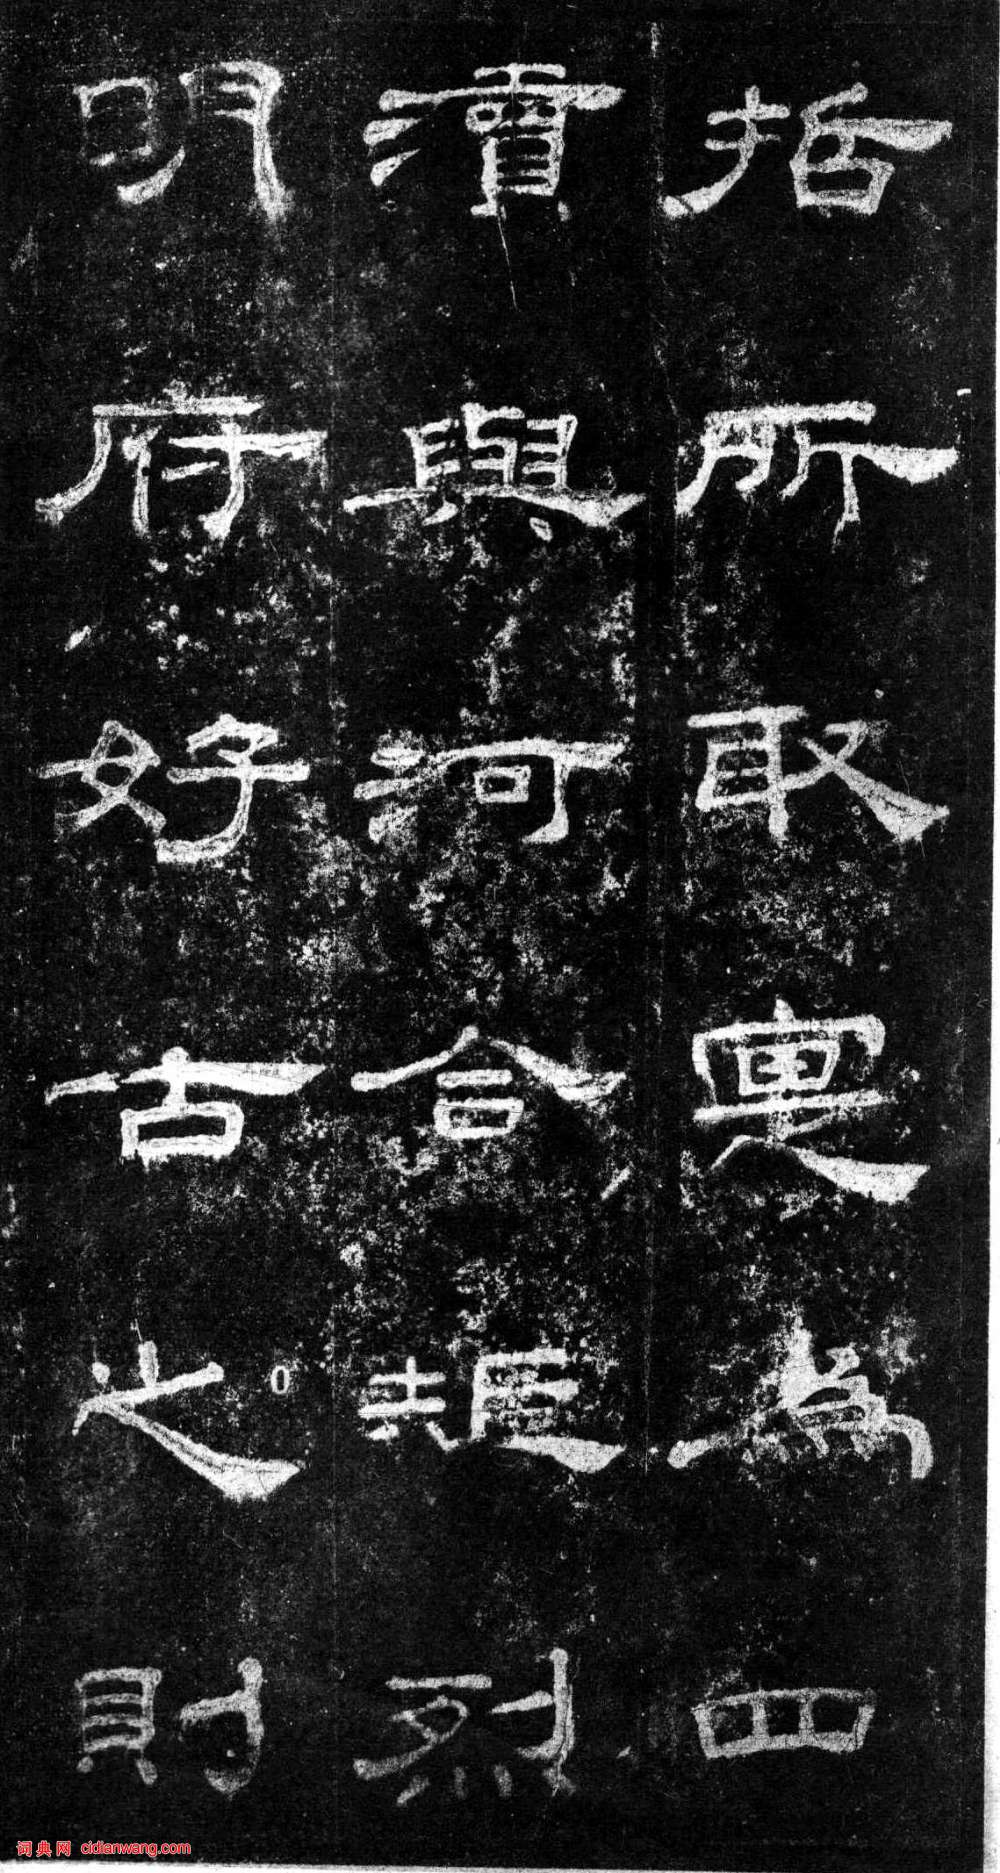 括所取寔為四
瀆與河合矩烈
明府好古之則
词典网 cidianwang.com